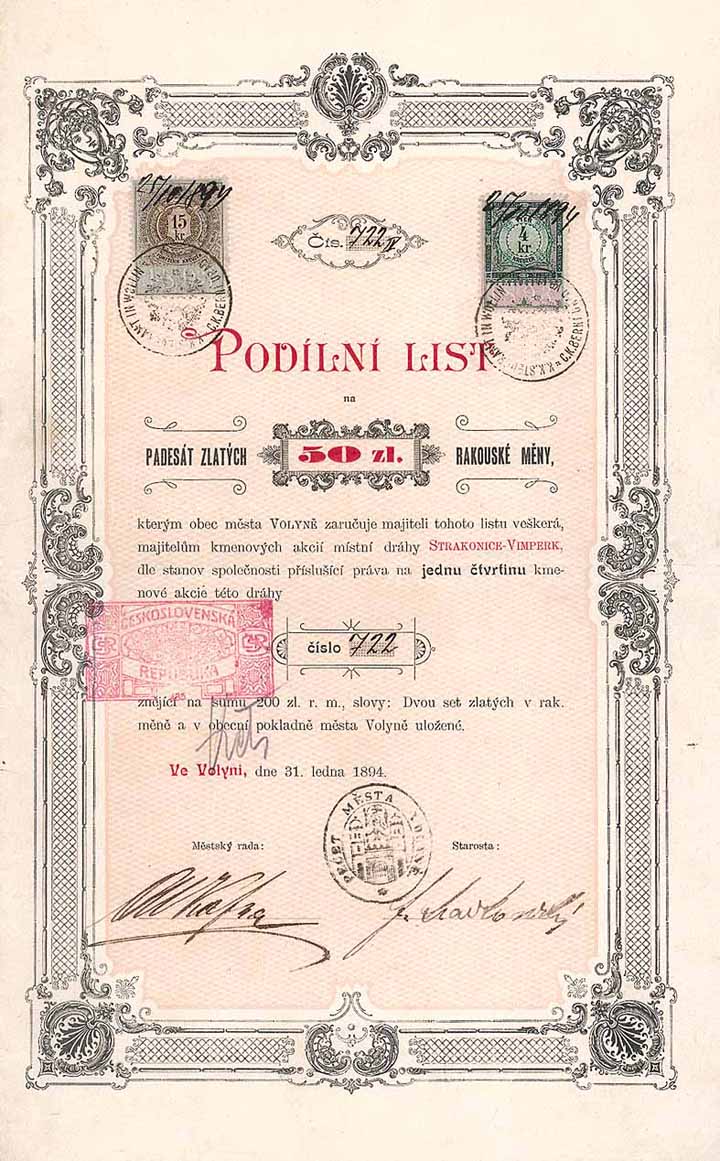 15
kr.
4
kr.
Čís. 722 IV
PODÍLNÍ LIST
na
PADESÁT ZLATÝCH 50 zl. RAKOUSKÉ MĚNY,
kterým obec města VOLYNĚ zaručuje majiteli tohoto listu veškerá,
majitelům kmenových akcií místní dráhy STRAKONICE-VIMPERK,
dle stanov společnosti příslušící práva na jednu čtvrtinu kme-
nové akcie této dráhy
ČESKOSLOVENSKÁ
REPUBLIKA
číslo 722
znějící na sumu 200 zl. r. m., slovy: Dvou set zlatých v rak.
měně a v obecní pokladně města Volyně uložené.
Ve Volyni, dne 31. ledna 1894.
PEČEŤ MĚSTA VOLYNĚ
Městský rada:
Starosta: